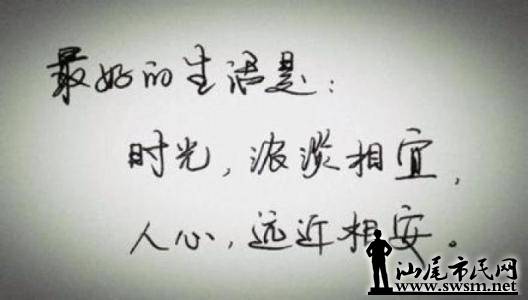 最好的生活是：
时光，浓淡相宜，
人心，远近相安。
汕尾市民网
www.swsm.net